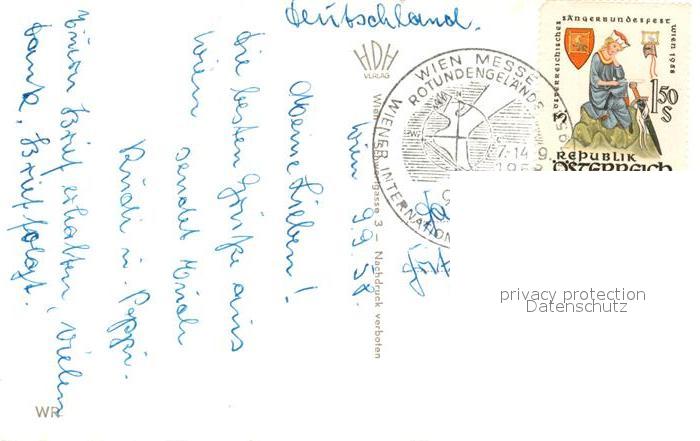 Wien 9.9.58.
Meine Lieben!
Die besten Grüße aus
Wien sendet Euch
Rudi u. Peppi.
Euren Brief erhalten, vielen
Dank, Brief folgt.
Deutschland.
HDH
VERLAG
Wien
gasse 3 – Nachdruck verboten
WIEN MESSE
ROTUNDENGELÄNDE
WIENER INTERNATION
7.-14.9.
195
ÖSTERREICHISCHES SÄNGERBUNDESFEST WIEN 1958
1.50 S
REPUBLIK
ÖSTERREICH
privacy protection
Datenschutz
WR